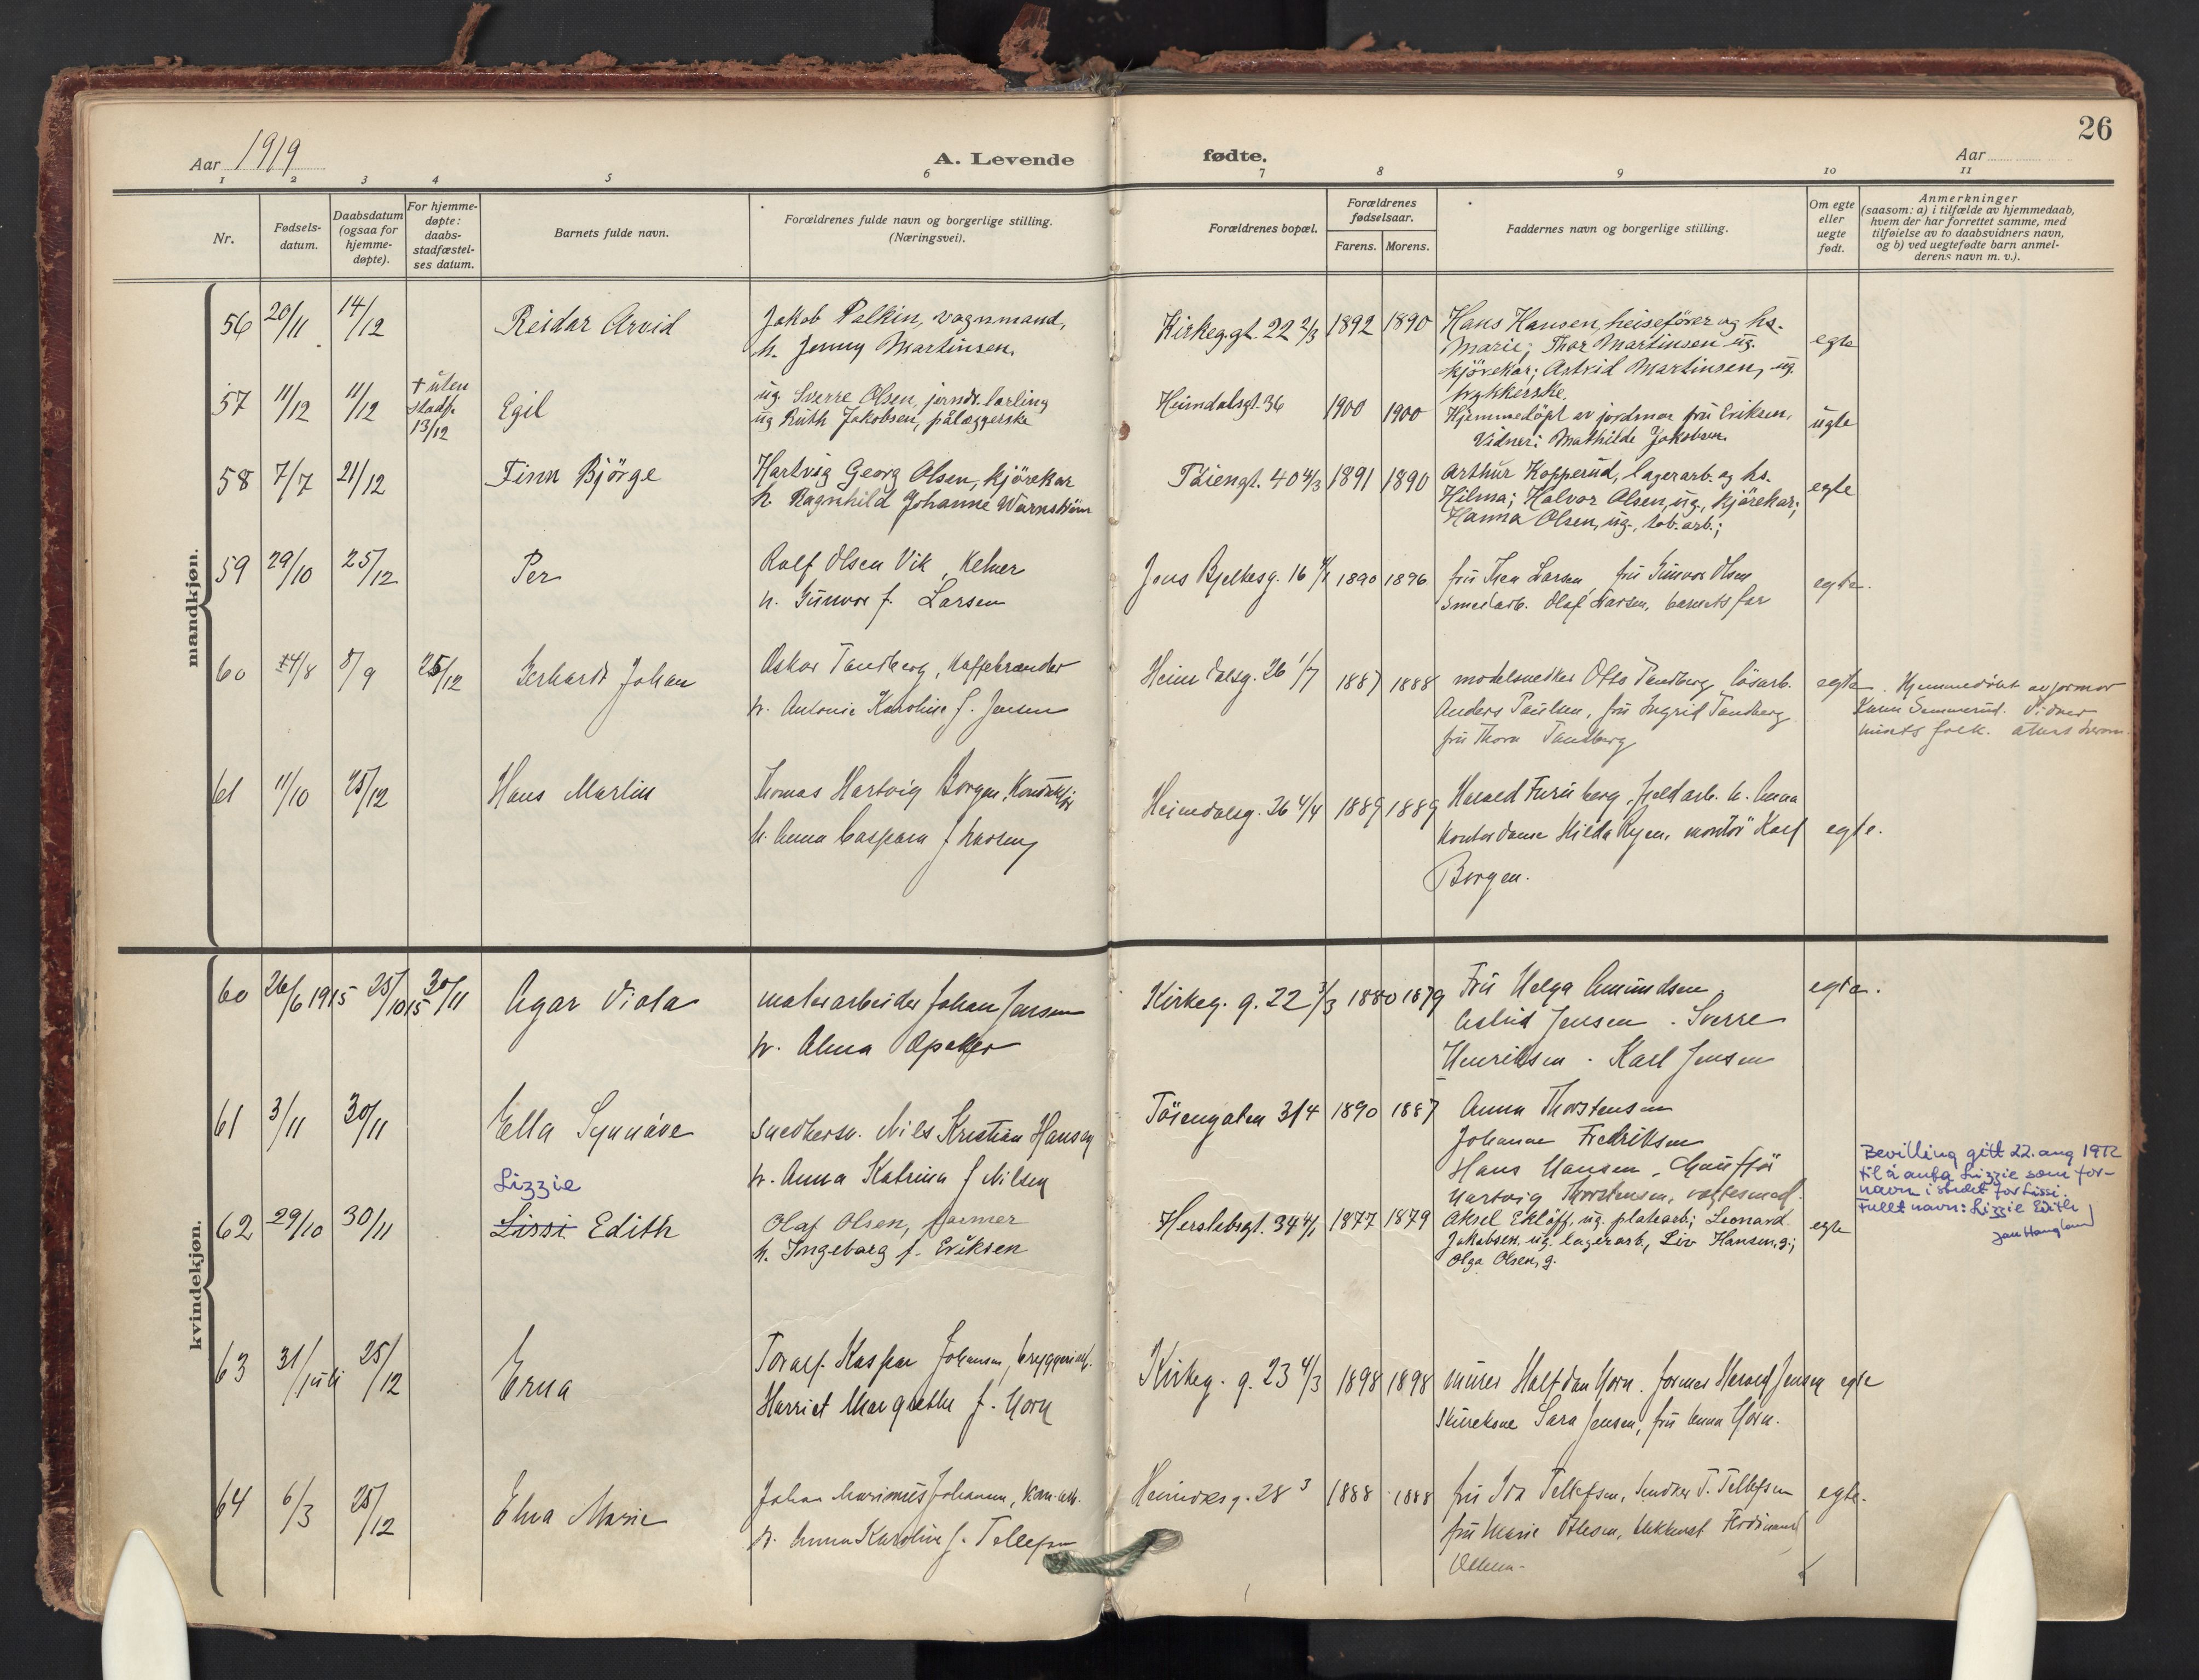 26
Aar 1919
A. Levende
fødte.
Aar
1 2 3 4 5 6 7 8 9 10 11
Nr.
Fødsels-
datum.
Daabsdatum
(ogsaa for
hjemme-
døpte).
For hjemme-
døpte:
daabs-
stadfæstel-
ses datum.
Barnets fulde navn.
Forældrenes fulde navn og borgerlige stilling.
(Næringsvei).
Forældrenes bopæl.
Forældrenes
fødselsaar.
Farens. Morens.
Faddernes navn og borgerlige stilling.
Om egte
eller
uegte
født.
Anmerkninger
(saasom: a) i tilfælde av hjemmedaab,
hvem der har forrettet samme, med
tilføielse av to daabsvidners navn,
og b) ved uegtefødte barn anmel-
derens navn m. v.).
mandkjøn.
56 20/11 14/12 Reidar Arvid
Jakob Palkin, vognmand,
h. Jenny Martinsen.
Kirkeg.gt. 22 2/3 1892 1890
Hans Hansen, heisefører og hs.
Marie; Thor Martinsen ug.
kjørekar; Astrid Martinsen, ug.
trykkerske.
egte
57 11/12 11/12
† uten
stadf.
13/12
Egil
ug. Sverre Olsen, jerndr. lærling
ug Ruth Jakobsen, pålæggerske
Heimdalsgt. 36 1900 1900
Hjemmedöpt av jordmor fru Eriksen,
Vidner: Mathilde Jakobsen
ugte
58 7/7 21/12 Finn Bjørge
Hartvig Georg Olsen, kjörekar
h. Ragnhild Johanne Warnström
Töiengt. 40 4/3 1891 1890
Arthur Kopperud, lagerarb. og hs.
Hilma; Halvor Olsen, ug., kjörekar;
Hanna Olsen, ug., tob. arb.;
egte
59 29/10 25/12 Per
Rolf Olsen Vik, Kelner
h. Gunvor f. Larsen
Jens Bjelkesg. 16 1890 1896
fru Thea Larsen, fru Gunvor Olsen
smedarb. Olaf Larsen, barnets far
egte.
60 4/8 8/9 25/12 Gerhardt Johan
Oskar Tandberg, Kaffebrænder
h. Antonie Karoline f. Jensen
Heimdalsg. 26 1/7 1887 1888
modelsnedker Otto Tandberg, lösarb.
Anders Paulsen, fru Ingrid Tandberg
fru Thora Tandberg
egte. Hjemmedöbt av jormor
61 11/10 25/12 Hans Martin
Thomas Hartvig Borgen,
h. Anna Caspara f. Larsen
Heimdalsg. 26 4/4 1889 1889
Harald Furuberg, h. Anna
Kontordame Hilda Ryen, montör Karl
Borgen.
egte.
kvindekjøn.
60 26/6 1915 25/10 15 30/11 Agar Viola
malerarbeider Johan Jensen
h. Alma
Kirkeg. g. 22 3/3 1880 1879
Fru Helga Amundsen.
Astrid Jensen. Sverre
Henriksen. Karl Jensen
egte.
61 3/11 30/11 Ella Synnöve
snedkersv. Nils Kristian Hansen
h. Anna Katrina f Nilsen
Töiengaten 3/4 1890 1887
Anna Thorstensen
Johanne Fredriksen
Hans Hansen, Chaufför
Hartvig Thorstensen,
62 29/10 30/11
Lizzie
Lissi Edith
Olaf Olsen, former
h. Ingeborg f. Eriksen
Herslebsgt. 34 4/1 1877 1879
Aksel Eklöff, ug. platearb; Leonard
Jakobsen ug. lagerarb, Liv Hansen, g.;
Olga Olsen, g.
egte
Bevilling gitt 22. aug 1972
til å anta Lizzie som for-
navn i stedet for Lissi.
Fullt navn: Lizzie Edith
Jan Haugland
63 31/juli 25/12 Erna
Toralf Kasper Johansen, bryggeriarb.
Harriet Margrethe f. Horn
Kirkeg. g. 23 4/3 1898 1898
murer Halfdan Horn. former Harald Jensen
Skurekone Sara Jensen, fru Anna Horn.
egte
64 6/3 25/12 Elna Marie
Johan Marinius Johansen,
h. Anna Karoline f. Tellefsen
Heimdalsg. 28 3 1888 1888
fru Ida Tellefsen, snedker T. Tellefsen
fru Marie Ferdinand
egte.